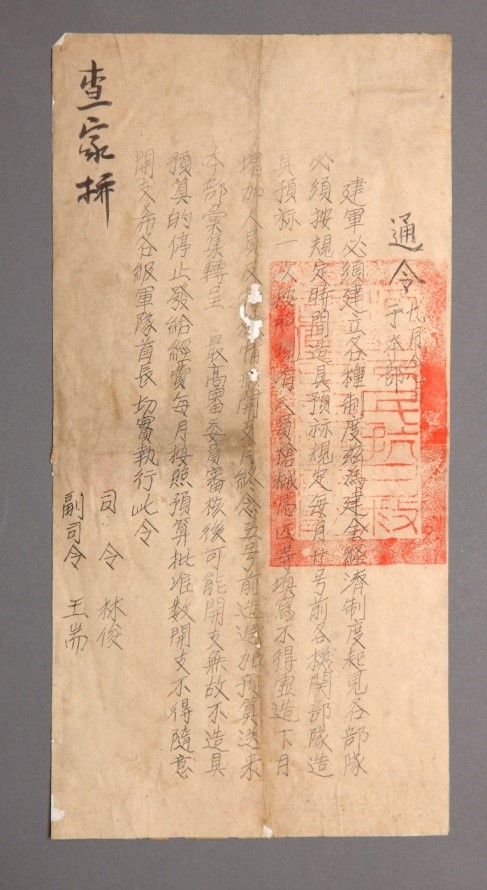 通令
九月
于本部
建軍必須建立各種制度兹為建全經濟制度起見各部隊
必須按規定時間造具預祘規定每月廿号前各機関部隊造
具預祘一次按人員槍械馬匹等填寫不得虚造下月
增加人員開支月終念五号前造追加預算送来
本部彙集轉呈 最高審委員審核後可能開支無故不造具
預算的停止發給經費每月按照預算批准數開支不得隨意
開支希各級軍隊首長切實執行此令
司令 林俊
副司令 王耑
查家拼